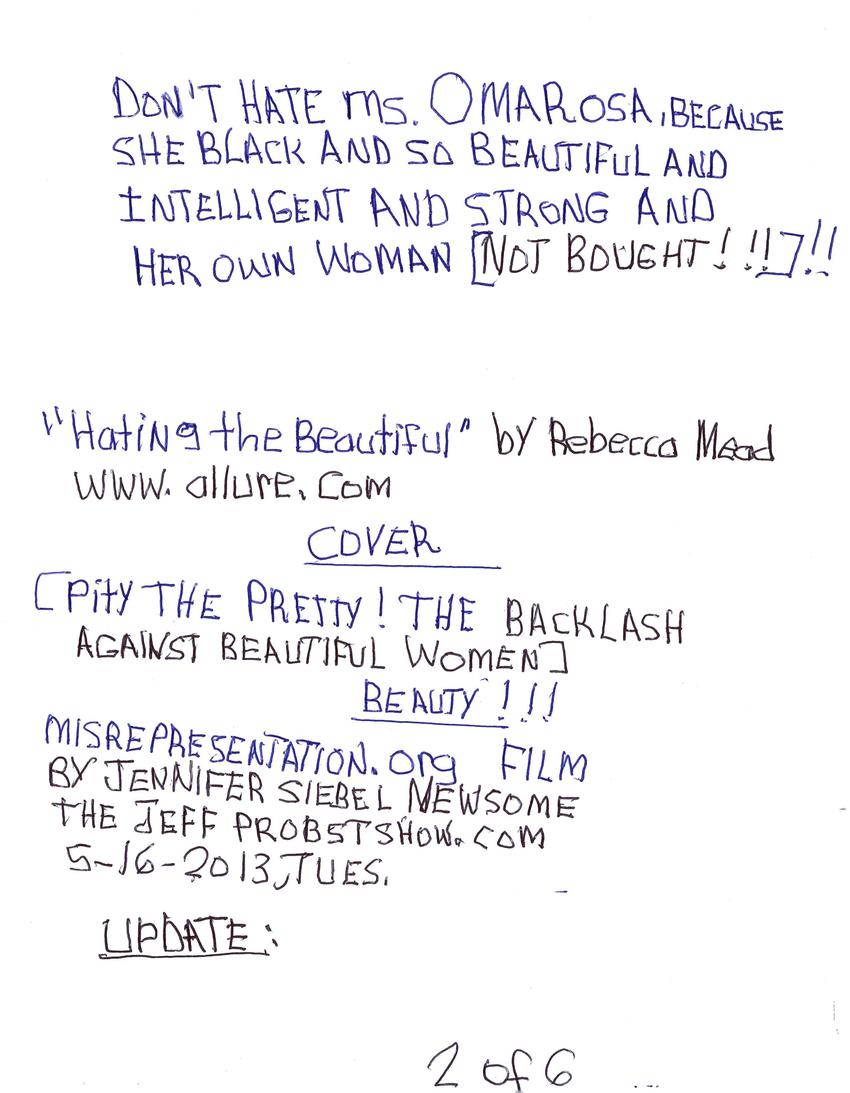 DON'T HATE Ms. OMAROSA, BECAUSE
SHE BLACK AND SO BEAUTIFUL AND
INTELLIGENT AND STRONG AND
HER OWN WOMAN [NOT BOUGHT! !!]!!
"Hating the Beautiful" by Rebecca Mead
WWW. allure. Com
COVER
[Pity THE PRETTY! THE BACKLASH
AGAINST BEAUTIFUL WOMEN]
BEAUTY !!!
MISREPRESENTATION.org FILM
BY JENNIFER SIEBEL NEWSOME
THE JEFF PROBSTSHOW.COM
5-16-2013, TUES.
UPDATE:
2 of 6